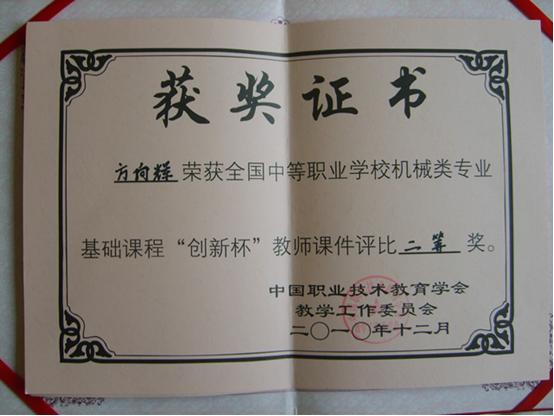 获奖证书
方向辉荣获全国中等职业学校机械类专业
基础课程“创新杯”教师课件评比二等奖。
中国职业技术教育学会
教学工作委员会
二〇一〇年十二月